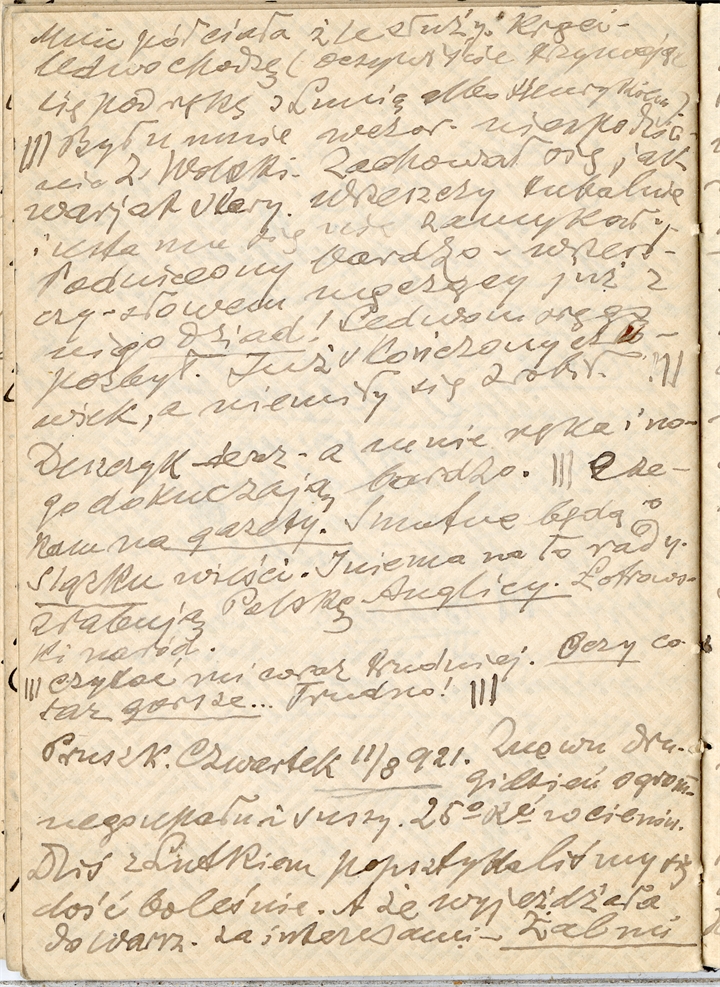 mnie pół ciała źle służy. Kręci-
ledwo chodzę (oczywiście trzymając
się pod rękę z Lunią albo Henrykiem)
||| Był u mnie wczor. niespodzia-
nie Z. Wolski. Zachował się jak
warjat stary. Wrzeszczy tubalnie
i usta mu się nie zamykały-
Podniecony bardzo - wrzesz-
czy - słowem męczący już z
niego dziad! Ledwom się go
pozbył. Już skończony czło-
wiek, a niemiły się zrobił. |||
Deszczyk teraz - a mnie ręka i no-
ga dokuczają bardzo. ||| Cze-
kam na gazety. Smutne będą o
Slązku wieści. I niema na to rady.
zrabują Polskę Anglicy. Łotrows-
ki naród.
||| Czytać mi coraz trudniej. Oczy co-
raz gorsze... Trudno! |||
Pruszk. Czwartek 11/8 921. Znowu dru-
gi dzień ogrom-
nego upału i suszy. 26° Ré w cieniu.
Dziś z Lutkiem popsztykaliśmy się
dość boleśnie. A że wyjeżdżała
do Warsz. za interesami - Żal mi